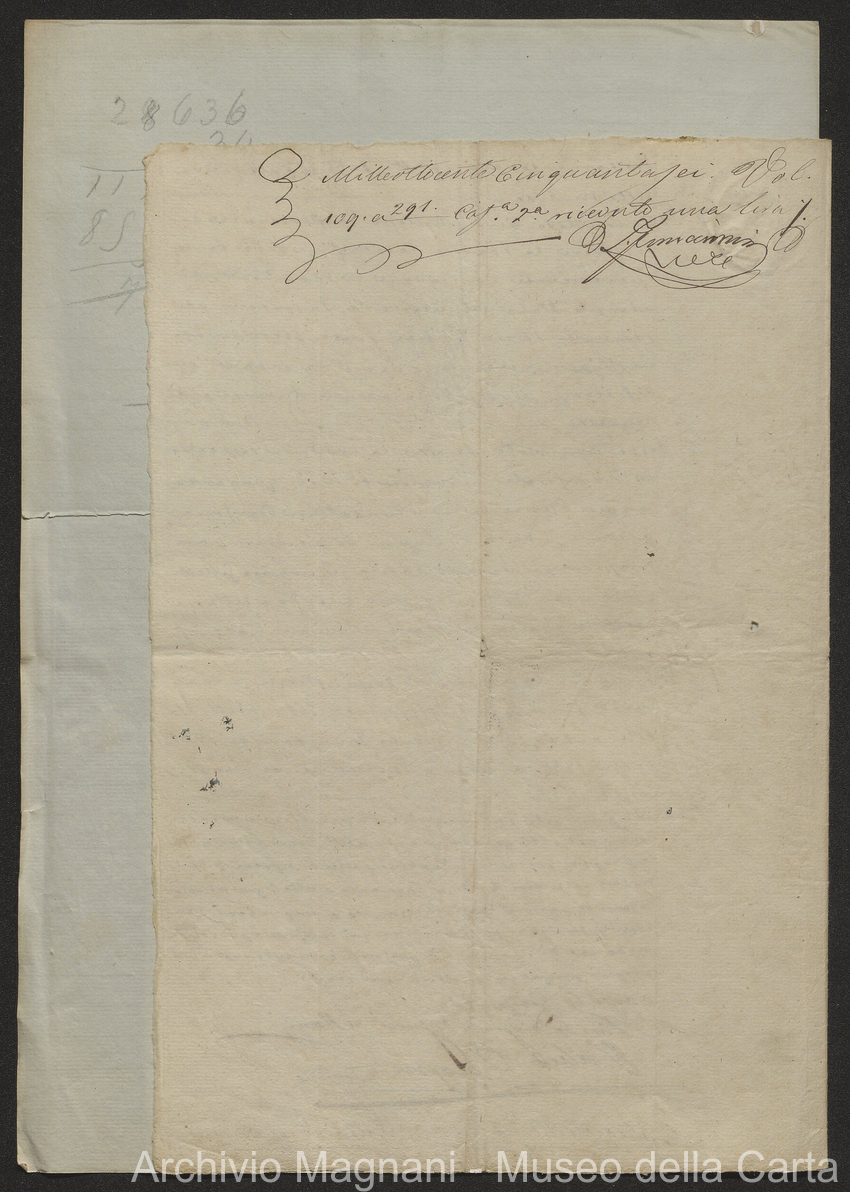 28636
Milleottocento Cinquantasei. Vol.
109. a 291. Cas.ª 2.ª ricevuto una lira
11
85
7
Archivio Magnani - Museo della Carta